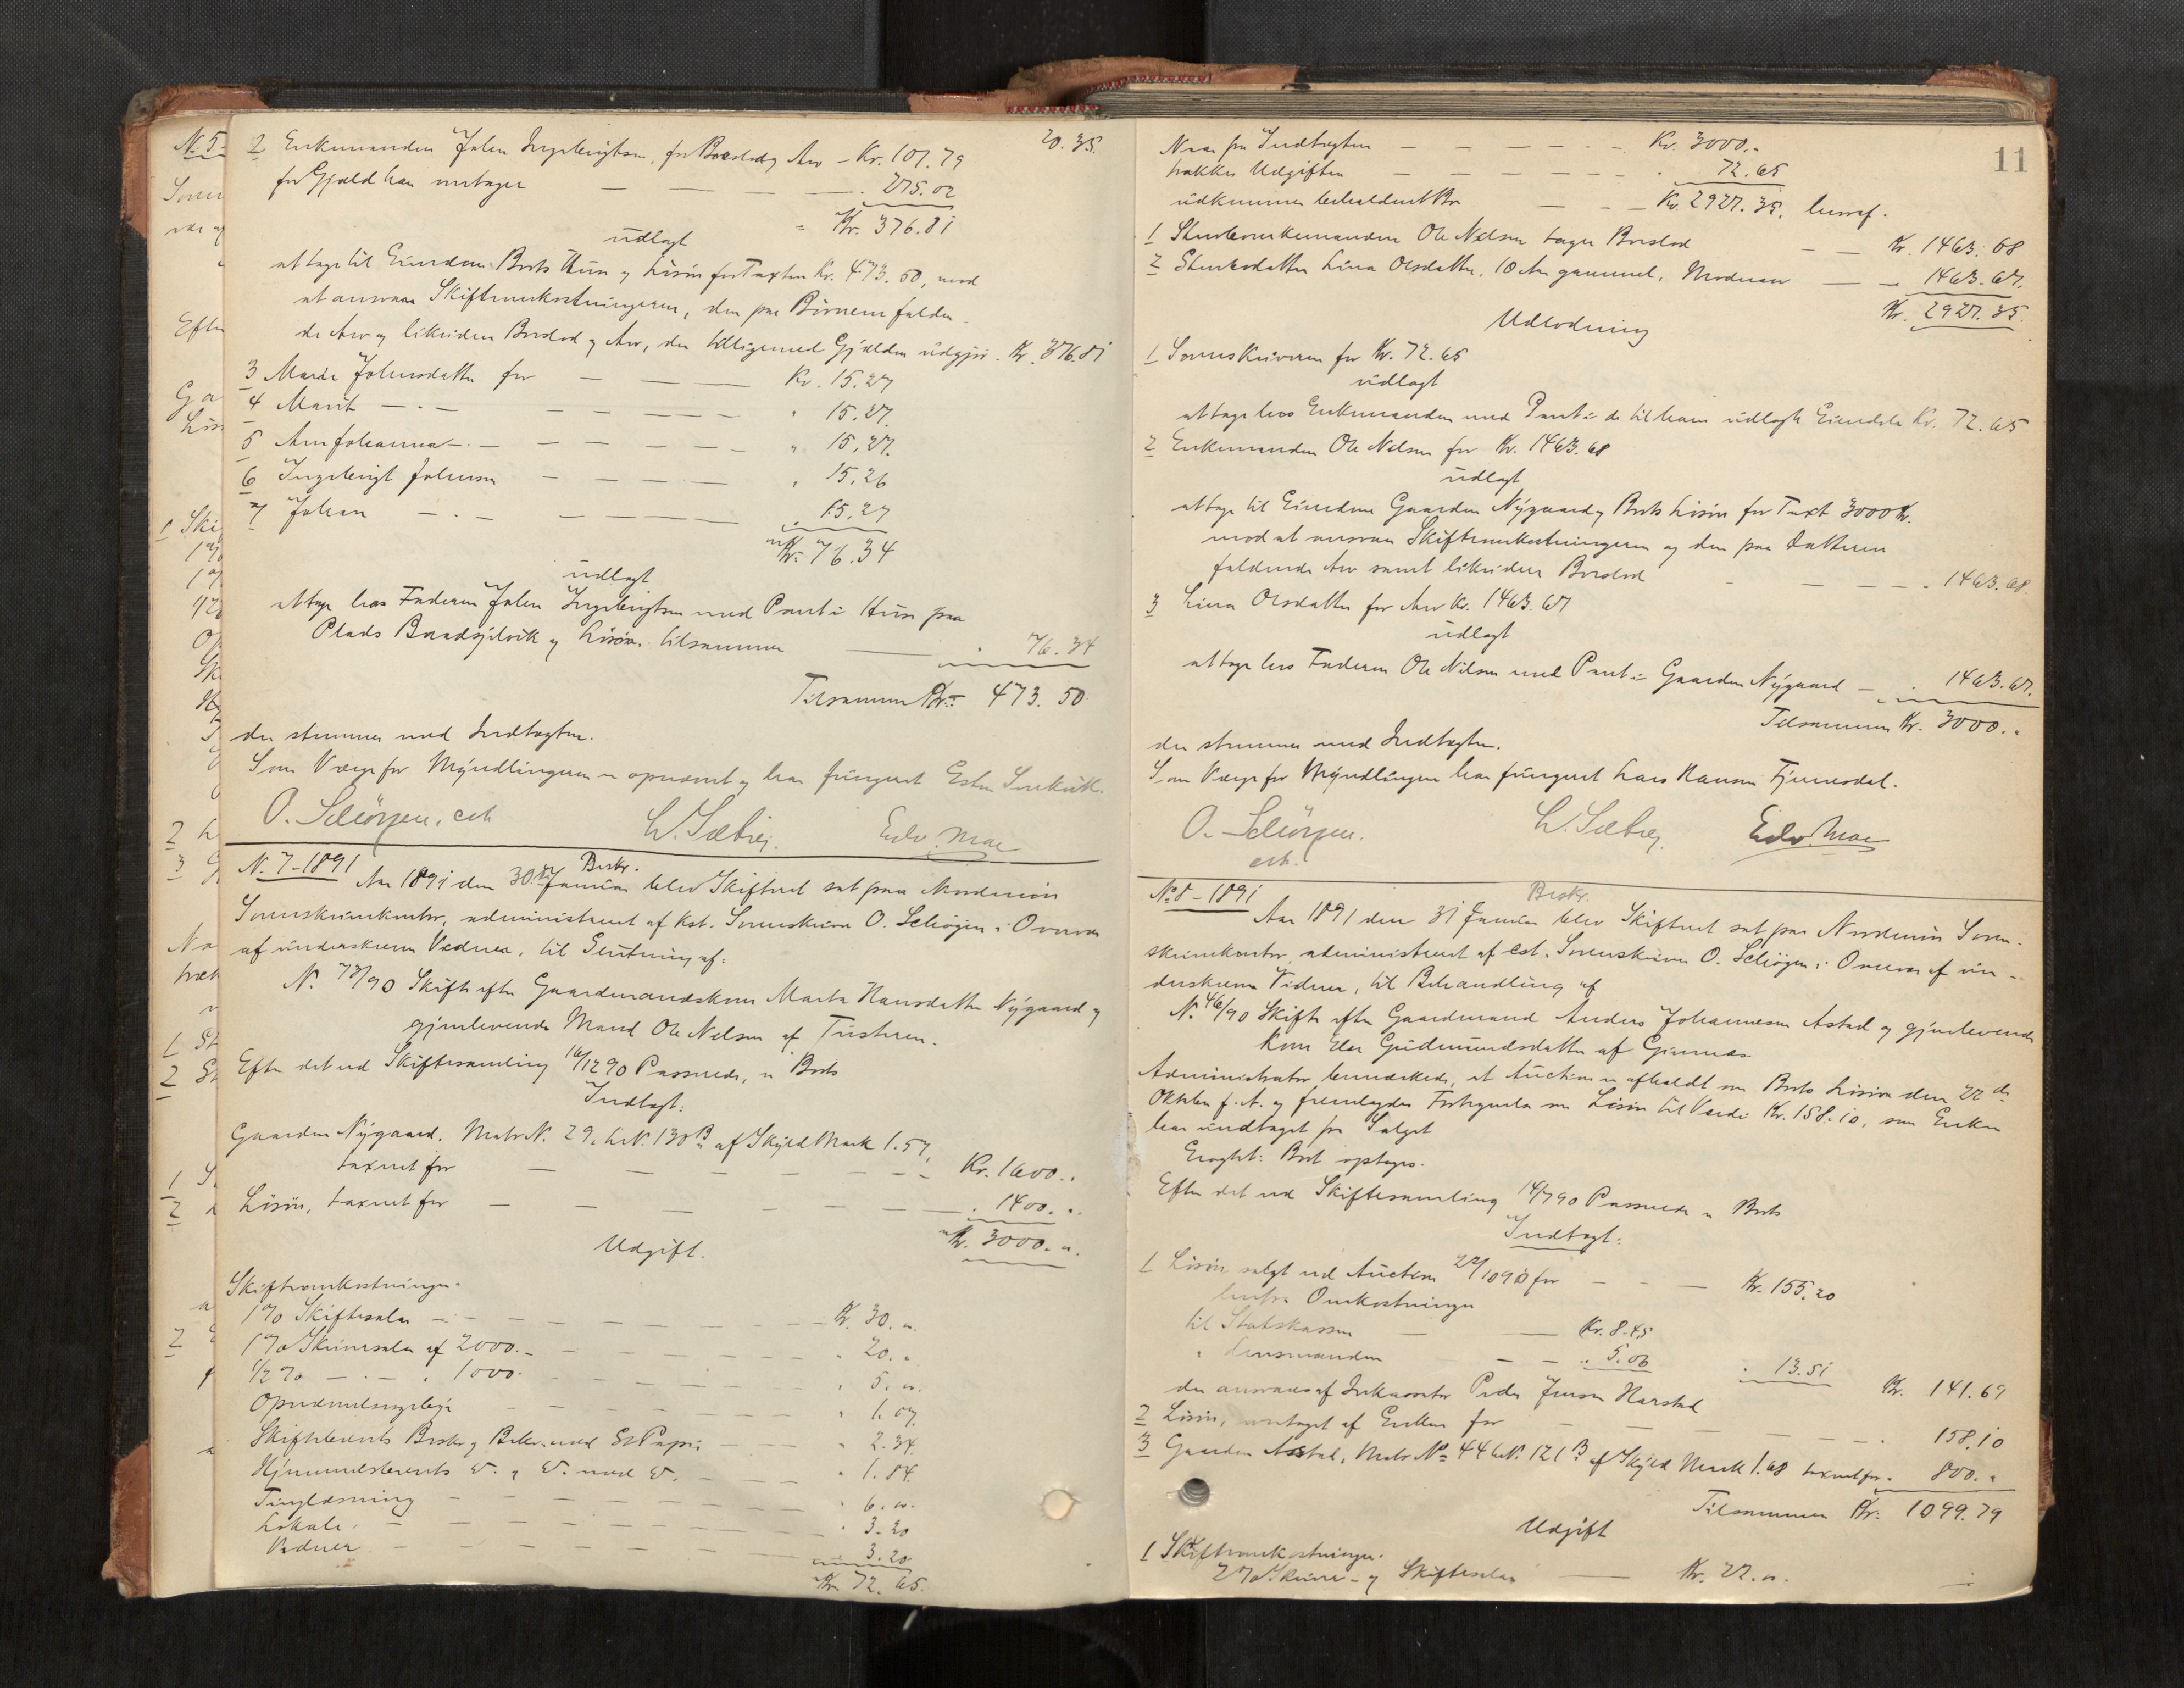 20.35.
2 Enkemanden John Ingebrigtsen, for Boeslod og Arv - Kr. 101.79
for Gjæld han modtager — — — 275.02
Kr. 376.81
udlagt
at tage til Eiendom Boets Huse og Løsøre for Taxten Kr. 473.50, mod
at ansvare Skifteomkostningerne, den paa Børnene falden-
de Arv og likvidere Boeslod og Arv, der tilligemed Gjælden udgjør. Kr. 376.81
3 Marie Johnsdatter for — — — Kr. 15.27
4 Marit — . — — — — " 15.27.
5 Ane Johanna — . — — — — " 15.27.
6 Ingebrigt Johnsen — — — — " 15.26
7 Johan — . — — — — 15.27
Kr. 76.34
udlagt
at tage hos Faderen John Ingebrigtsen med Pant i Huse paa
Plads og Løsøre. tilsammen — 76.34
Tilsammen Kr. 473.50.
der stemmer med Indtægten.
Som Værge for Myndlingerne er opnævnt og har fungeret
O. Schörgen, cst. W. Sæbø. Edv. Moe
N. 7-1891 Beskr.
Aar 1891 den 30te Januar blev Skifteret sat paa Nordmør
Sorenskriverkontor, administreret af kst. Sorenskriver O. Schörgen i Overvær
af underskrevne Vidner, til Slutning af:
N. 78/90 Skifte efter Gaardmandskone Marta Hansdatter Nygaard og
gjenlevende Mand Ole Nelsen af Tusteren.
Efter det ved Skiftesamling 16/12 90 Passerede, er Boets
Indtægt:
Gaarden Nygaard. Matr. N. 29. L. N. 130 B af Skyld Mark 1.57,
taxeret for — — — — — Kr. 1600. "
Løsøre, taxeret for — — — — — 1400. "
Kr. 3000. "
Udgift.
Skifteomkostninger.
1% Skiftesalær — — — Kr. 30. "
1% Skriversalær af 2000. — — — " 20. "
1/2 % — . — " 1000. — — — " 5. "
Opnævnelsesgebyr — — — " 1.07
Skiftebrevets Beskr. og Bekr. med St. Papir — — — " 2.34
Hjemmelsbrevets D. og D. med D. — — — " 1.84
Tinglæsning — — — " 6. "
Lokale — — — " 3.20
Vidner — — — 3.20
Kr. 72.65.
11
Naar fra Indtægten — — — — — Kr. 3000. "
trækkes Udgiften — — — — — — 72.65
udkommer beholdent Bo — — — Kr. 2927.35, hvoraf.
1 Stervboenkemanden Ole Nelsen tager Boeslod — — Kr. 1463.68
2 Stervbodatter Lina Olsdatter, 10 Aar gammel, Modrearv — — 1463.67.
Kr. 2927.35.
Udlodning
1 Sorenskriveren for Kr. 72.65
udlagt
at tage hos Enkemanden med Pant i de til ham udlagte Eiendele Kr. 72.65
2 Enkemanden Ole Nelsen for Kr. 1463.68
udlagt
at tage til Eiendom Gaarden Nygaard og Boets Løsøre for Taxt 3000 Kr.
mod at ansvare Skifteomkostningerne og den paa Datteren
faldende Arv samt likvidere Boeslod — — — — " 1463.68.
3 Lina Olsdatter for Arv Kr. 1463.67
udlagt
at tage hos Faderen Ole Nilsen med Pant i Gaarden Nygaard — " 1463.67.
Tilsammen Kr. 3000. "
der stemmer med Indtægten.
Som Værge for Myndlingen har fungeret Lars Hansen
O. Schörgen. W. Sæbø. Edv. Moe
cst.
No 8-1891 Beskr.
Aar 1891 den 31 Januar blev Skifteret sat paa Nordmør Soren-
skriverkontor, administreret af cst. Sorenskriver O. Schörgen i Overvær af un-
derskrevne Vidner, til Behandling af
N. 46/90 Skifte efter Gaardmand Anders Johannesen Astad og gjenlevende
Kone Gudmundsdatter af
Administrator bemærkede, at Auction er afholdt over Boets Løsøre den 22de
Oktober f. A. og fremlagdes Fortegnelse over Løsøre til Værdi Kr. 158.10, som Enken
har undtaget fra Salget
Eragtet: Boet optages.
Efter det ved Skiftesamling 14/7 90 Passerede er Boets
Indtægt:
1 Løsøre solgt ved Auction 22/10 90 for — — — Kr. 155.20
herfra Omkostninger
til Statskassen — — Kr. 8.45
" Lensmanden — — " 5.06 " 13.51
der ansvares af Inkassator Peder Jensen Harstad Kr. 141.69
2 Løsøre, modtaget af Enken for — — — — " 158.10
3 Gaarden Astad, Matr. No 44 L. N. 121 B af Skyld Mark 1.68 taxeret for. 800. "
Tilsammen Kr. 1099.79
Udgift
1 Skifteomkostninger.
2% Skriver- og Skiftesalær — Kr. 22. "